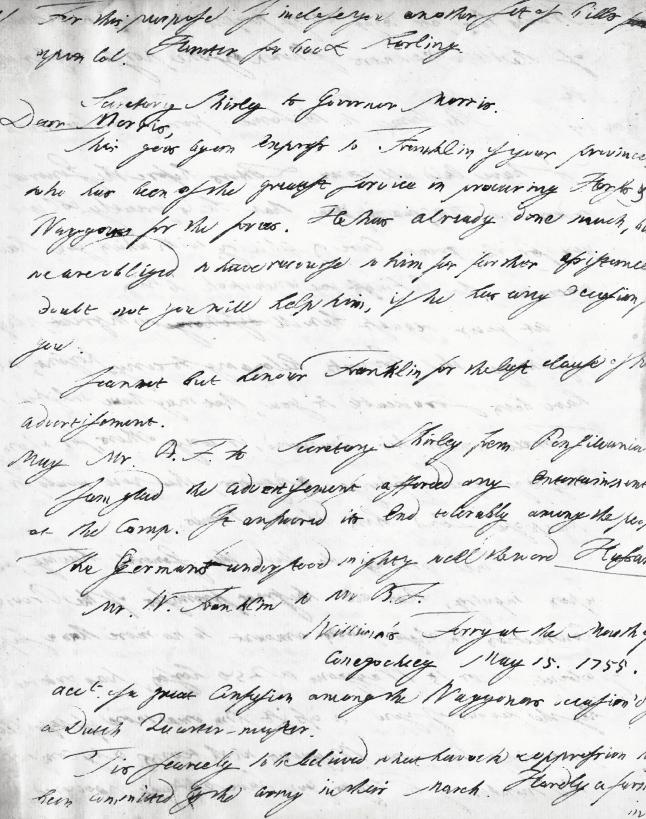 For this purpose I inclose you another sett of Bills
upon Col. Hunter for 600£ Sterling.
Secretary Shirley to Governor Morris.
Dear Morris,
This goes upon Express to Franklin of your province
who has been of the greatest service in procuring Horses &
Waggons for the forces. He has already done much,
we are obliged to have recourse to him for further assistance
doubt not you will help him, if he has any Occasion
you.
I cannot but honour Franklin for the last clause of
advertisement.
May Mr. B. F. to Secretary Shirley from Pensilvania
I am glad the advertisement afforded any Entertainment
at the Camp. It answered its End tolerably among the
The Germans understood mighty well the word Hussar
Mr. W. Franklin to Mr B. F.
William's Ferry at the Mouth of
Conegochieg May 15. 1755.
acct. of a great Confusion among the Waggoners occasion'd
a Dutch Quarter-master.
Tis scarcely to be believed what havock & oppression
been committed by the army in their March. Hardly a farm
in